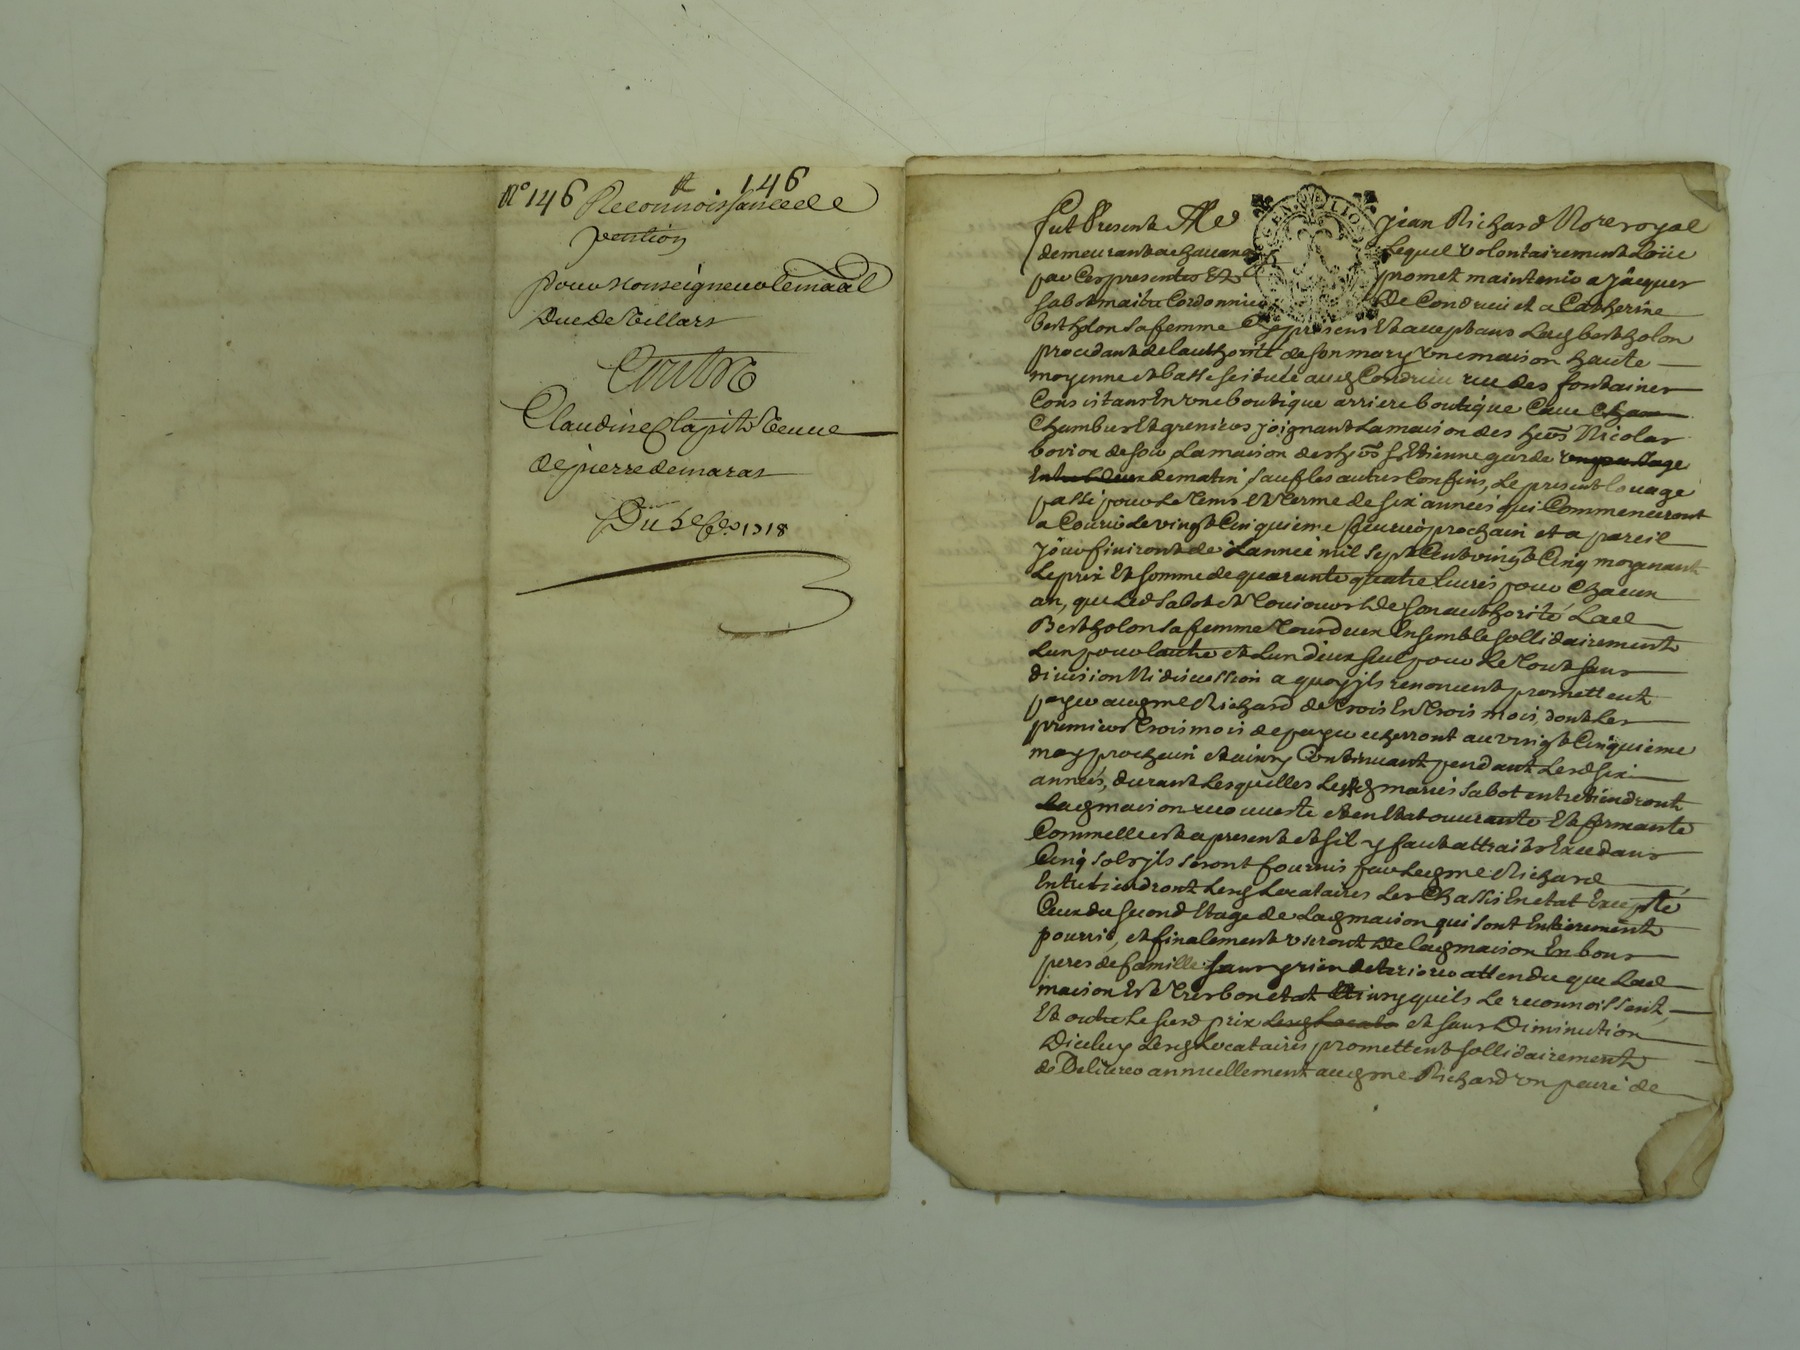 N° 146 Reconnoissance de 146
pention
pour Monseigneur le maal
Duc De Villars
Contre
Claudine Clapit Veuve
de pierre demaras
Du 5e 1718
fut Present Me jean Richard Nore royal
demeurant a chauanay Lequel volontairement Loüe
par Ces presentes Et promet maintenir a jâcques
Sabot maitre Cordonnier De Condrieu et a Catherine
bertholon sa femme Cy presens Et acceptans Ladg bertholon
procedant de lauthorité de son mary vne maison haute
moyenne et basse scituée audg Condrieu rue des fontaines
Consistans En vne boutique arriere boutique Caue
Chambres Et greniers joignant La maison des hers Nicolas
bovion de soir La maison des hers St Etienne garde
de matin sauf les autres Confins, Le present louage
passé pour Le Tems Et Terme de six années qui Commenceront
a Courir Le vingt Cinquieme feurier prochain et a pareil
jour finiront de L'année mil sept Cent vingt Cinq moyenant
Le prix Et somme de quarante quatre Liures pour Chacun
an, que Led Sabot et Toujours De son authorité Lad
Bertholon sa femme Tous deux Ensemble sollidairement
Lun pour lautre et Lun deux seul pour Le Tout sans
diuision Ni discussion a quoy jls renoncent promettent
payer audg me Richard de Trois En Trois mois, dont Les
premiers Trois mois de payer echerront au vingt Cinquieme
may prochain et ainsy Continuant pendant Lesd six
années, durant Lesquelles Lesdg mariés Sabot entretiendront
Ladg maison recouuerte et en Etat ouurante Et fermante
Comme elle est a present et sil y faut attraits Excedans
Cinq sols jls seront fournis par Ledg me Richard
Entretiendront Lesdg Locataires Les Chassis En etat Excepté
Ceux du second Etage de Ladg maison qui sont Entierement
pourris, et finalement vseront de Ladg maison En bons
peres de famille sans y rien deteriorer attendu que Lad
maison Est Tres bon etat ainsy quils Le reconnoissent,
Et outre Le susd prix et sans Diminution
Diceluy Lesdg Locataires promettent sollidairement
de Deliurer annuellement audg me Richard vn paire de